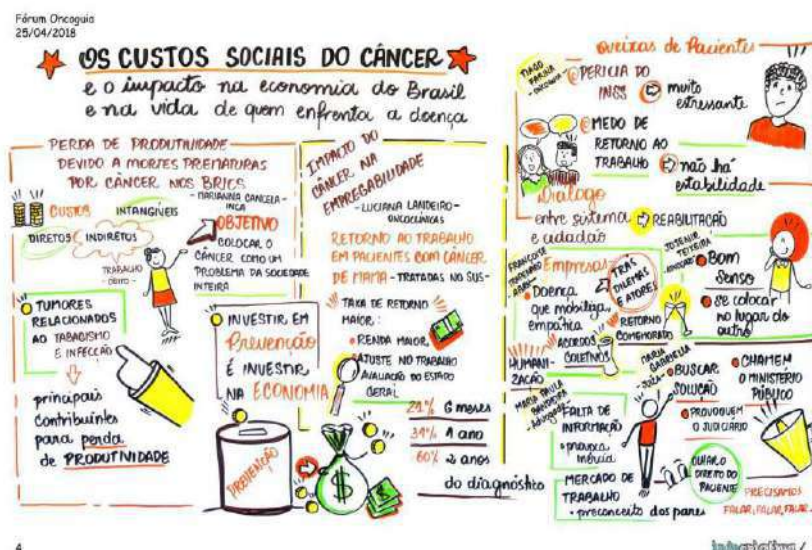 Fórum Oncoguia
25/04/2018
OS CUSTOS SOCIAIS DO CÂNCER
e o impacto na economia do Brasil
e na vida de quem enfrenta a doença
PERDA DE PRODUTIVIDADE
DEVIDO A MORTES PREMATURAS
POR CÂNCER NOS BRICS
- MARIANNA CANCELA -
INCA
CUSTOS
INTANGÍVEIS
DIRETOS
INDIRETOS
TRABALHO
- ÓBITO -
OBJETIVO
COLOCAR O
CÂNCER COMO UM
PROBLEMA DA SOCIEDADE
INTEIRA
TUMORES
RELACIONADOS
AO TABAGISMO
E INFECÇÃO
principais
contribuintes
para perda
de PRODUTIVIDADE
INVESTIR EM
Prevenção
É INVESTIR
NA ECONOMIA
PREVENÇÃO
IMPACTO DO
CÂNCER NA
EMPREGABILIDADE
- LUCIANA LANDEIRO -
ONCOCLÍNICAS
RETORNO AO TRABALHO
EM PACIENTES COM CÂNCER
DE MAMA - TRATADAS NO SUS -
TAXA DE RETORNO
MAIOR:
• RENDA MAIOR
AJUSTE NO TRABALHO
AVALIAÇÃO DO ESTADO
GERAL
6 meses
1 ano
60% 2 anos
do diagnóstico
$
Queixas de Pacientes
TIAGO
FARINA
- ONCOGUIA -
PERÍCIA DO
INSS
muito
estressante
MEDO DE
RETORNO AO
TRABALHO
não há
estabilidade
Diálogo
entre sistema
e cidadão
REABILITAÇÃO
Empresas
• Doença
que mobiliza,
empática
TRÁS
DILEMAS
E ATORES
JOSENIR
TEIXEIRA
Bom
Senso
se colocar
no lugar do
outro
RETORNO
COMEMORADO
HUMANI-
ZAÇÃO
ACORDOS
COLETIVOS
MARIA PAULA
BANDEIRA
- Advogada -
FALTA DE
INFORMAÇÃO
• provoca
inércia
MERCADO DE
TRABALHO
• preconceito dos pares
MARIA
GABRIELLA
BUSCAR
SOLUÇÃO
CHAMEM
O MINISTÉRIO
PÚBLICO
PROVOQUEM
O JUDICIÁRIO
OLHAR O
DIREITO DO
PACIENTE
PRECISAMOS
FALAR, FALAR, FALAR
4